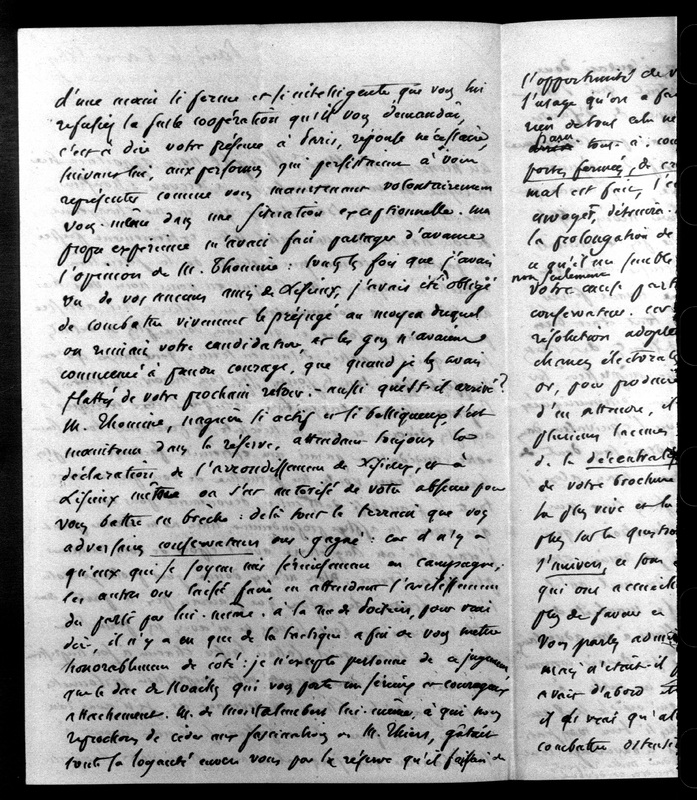 d'une main si ferme et si intelligente que vous lui
refusiez la faible coopération qu'il vous demandait,
c'est à dire votre présence à Paris, réponse nécessaire,
suivant lui, aux personnes qui persistaient à vous
représenter comme vous maintenant volontairement
vous-même dans une situation exceptionnelle. ma
propre expérience m'avait fait partager d'avance
l'opinion de M. Thomine : toutes les fois que j'avais
vu de vos anciens amis de Lisieux, j'avais été obligé
de combattre vivement le préjugé au moyen duquel
on ruinait votre candidature, et les gens n'avaient
commencé à prendre courage, que quand je les avais
flattés de votre prochain retour. - aussi qu'est-il arrivé ?
M. Thomine, naguère si actif et si belliqueux, s'est
maintenu dans la réserve, attendant toujours la
déclaration de l'arrondissement de Lisieux, et à
Lisieux même on s'est autorisé de votre absence pour
vous battre en brèche : delà tout le terrain que vos
adversaires conservateurs ont gagné : car il n'y a
qu'eux qui se soyent mis sérieusement en campagne,
les autres ont laissé faire en attendant
du parti par lui-même. à la rue de Poitiers, pour vrai
dire, il n'y a eu que de la tactique afin de vous mettre
honorablement de côté : je n'excepte personne de ce jugement
que le duc de Noailles qui vous porte un sérieux et courageux
attachement. M. de Montalembert lui-même, à qui nous
reprochons de céder aux fascinations de M. Thiers, gâtait
toute sa loyauté envers vous par la réserve qu'il faisait de
l'opportunité de
l'usage qu'on a
rien de tout cela ne
tous à
portes fermées, de
mal est fait, l'
la prolongation de
a qu'il me semble
non seulement
votre cause
conservateur. car
résolution
chances électorales
or, pour produire
d'en attendre, il
plusieurs
de la
de votre brochure
la plus vive et la
plus sur la question
l'univers, et
qui ont accueilli
plus de faveur
vous parlez
mais n'était-il
avait d'abord
il est vrai qu'
combattre